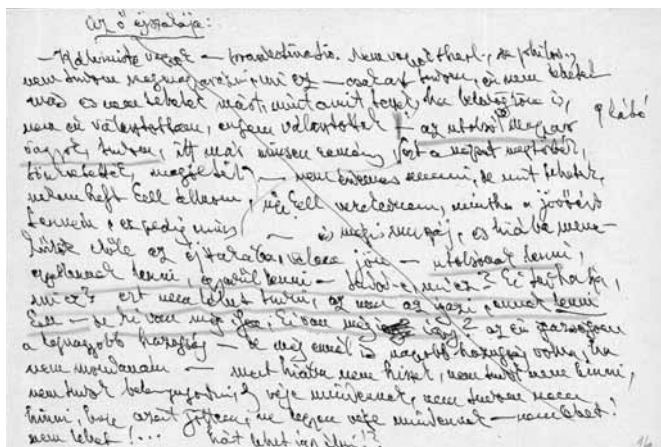 Az ő éjszakája:
— Kálvinista vagyok — praedestinatio. Nem vagyok theol., se philos.,
nem tudom megmagyarázni mi ez — csak azt tudom, én nem lehetek
más és nem tehetek mást, mint amit teszek, ha
nem én választottam, engem választottak — az utolsó magyar
vagyok, tudom, itt már nincsen remény, ezt a népet megölték,
— nem érdemes semmit, de mit tehetek,
nekem hitt kell tennem, úgy kell vezetnem, mintha a jövőért
tenném, ez pedig nincs — és mégis muszáj, és hiába mene-
külök előle az éjszakába, velem jön — utolsónak lenni,
egyetlennek lenni, egyedül lenni — tudod-e, mi ez? Ki tudhatja,
mi ez? ezt nem lehet tudni, az nem az igazi, ennek lenni
kell — de ki van még ilyen, ki van még így? az én igazságom
a legnagyobb hazugság — de még ennél is nagyobb hazugság volna, ha
nem mondanám — mert hiába nem hiszek, nem tudok nem hinni,
nem tudok belenyugodni, h. vége mindennek, nem tudom nem
hinni, hogy azért jöttem, ne legyen vége mindennek — nem lehet!
nem lehet! ... hát lehet így élni!?